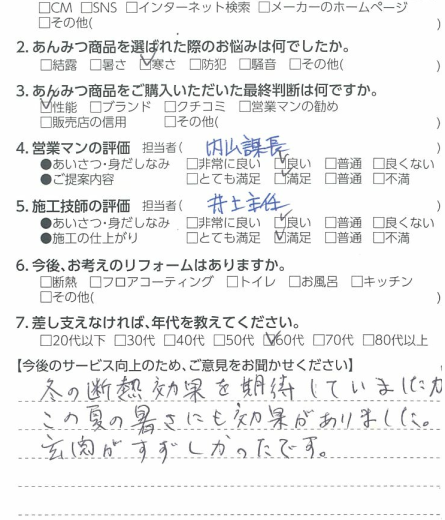 □CM □SNS □インターネット検索 □メーカーのホームページ
□その他( )
2. あんみつ商品を選ばれた際のお悩みは何でしたか。
□結露 □暑さ ☑寒さ □防犯 □騒音 □その他( )
3. あんみつ商品をご購入いただいた最終判断は何ですか。
☑性能 □ブランド □クチコミ □営業マンの勧め
□販売店の信用 □その他( )
4. 営業マンの評価 担当者( 内山課長 )
●あいさつ・身だしなみ □非常に良い ☑良い □普通 □良くない
●ご提案内容 □とても満足 ☑満足 □普通 □不満
5. 施工技師の評価 担当者( 井上主任 )
●あいさつ・身だしなみ □非常に良い ☑良い □普通 □良くない
●施工の仕上がり □とても満足 ☑満足 □普通 □不満
6. 今後、お考えのリフォームはありますか。
□断熱 □フロアコーティング □トイレ □お風呂 □キッチン
□その他( )
7. 差し支えなければ、年代を教えてください。
□20代以下 □30代 □40代 □50代 ☑60代 □70代 □80代以上
【今後のサービス向上のため、ご意見をお聞かせください】
冬の断熱効果を期待していましたが
この夏の暑さにも効果がありました。
玄関がすずしかったです。